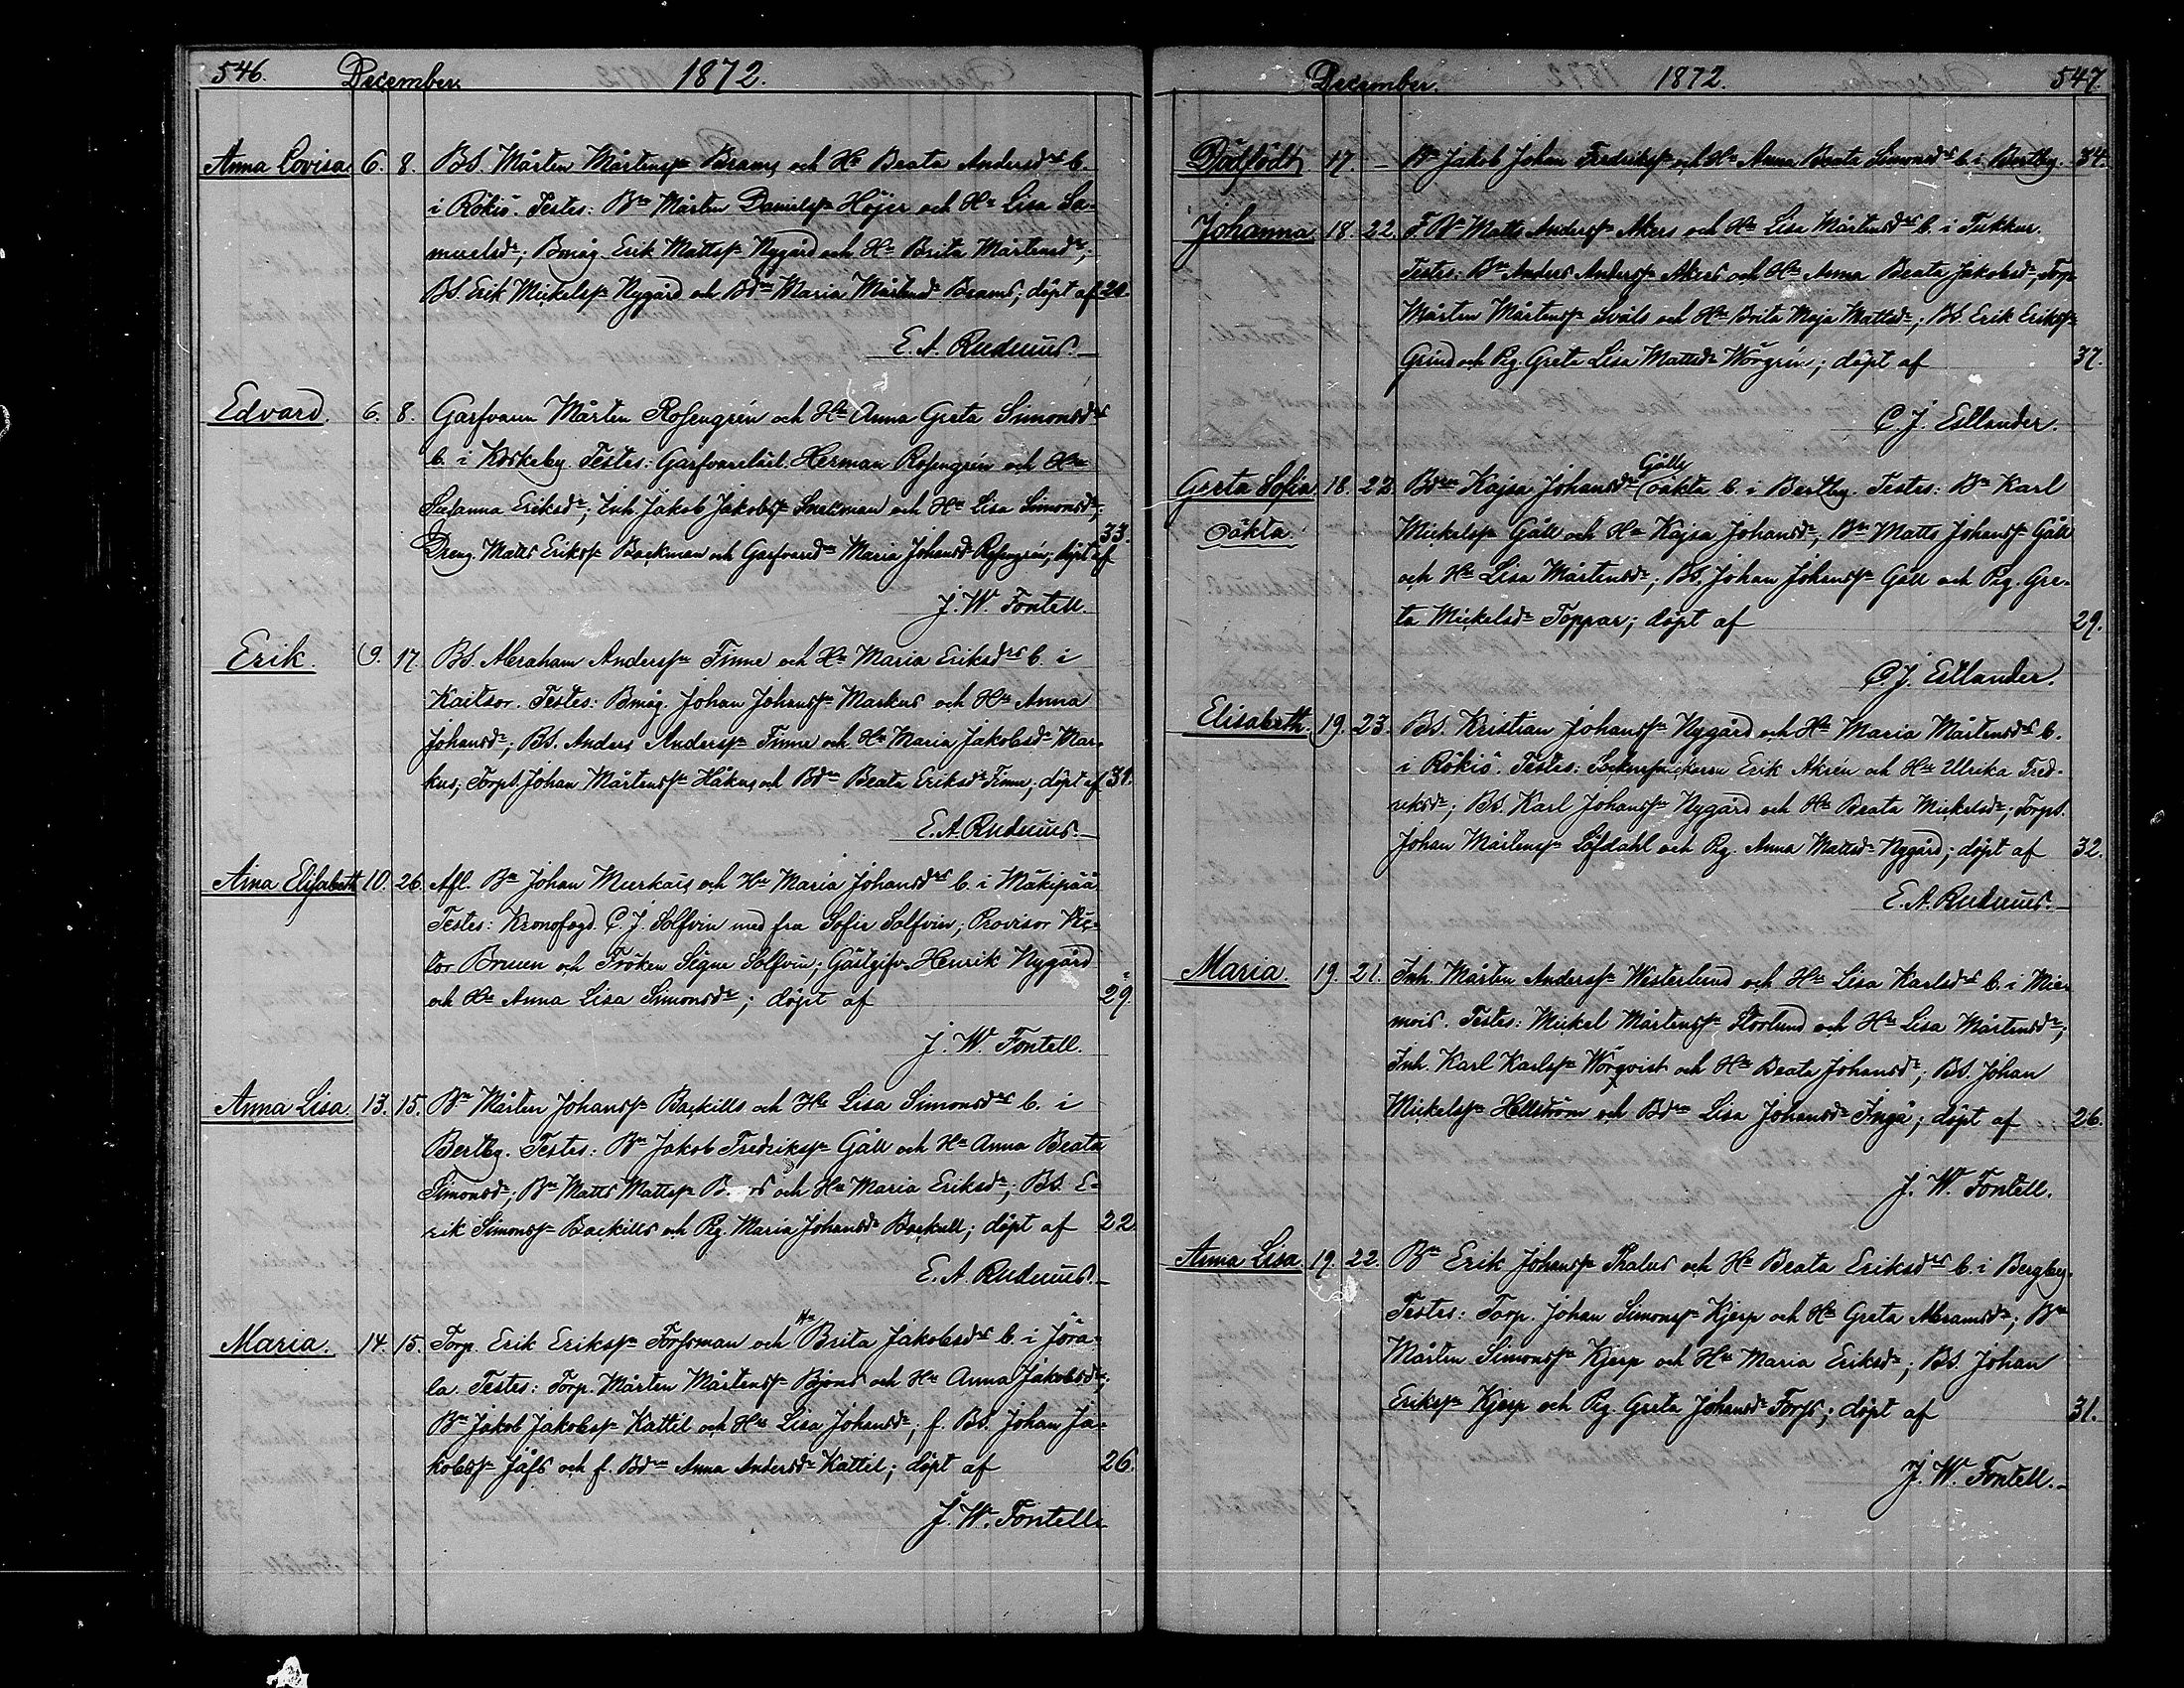 546. December. 1872.
Anna Lovisa. 6. 8. BS. Mårten Mårtensſn Brams och Hu Beata Andersdrs b.
i Rökiö. Testes: Bn Mårten Danielsſn Höjer och Hu Lisa Sa-
muelsdr; Bmåg. Erik Mattsſn Nygård och Hu Brita Mårtensdr;
BS. Erik Mickelsſn Nygård och Bdn Maria Mårtensdr Brams; döpt af
E. A. Rudnäs.
Edvard. 6. 8. Garfvaren Mårten Roſengrén och Hu Anna Greta Simonsdrs
b. i Koskeby. Testes: Garfvarelärl. Herman Roſengrén och Hu
Susanna Eriksdr; Inh. Jakob Jakobsſn Snickman och Hu Lisa Simonsdr;
Dreng. Matts Eriksſn Backman och Garfvared. Maria Johansdr Roſengrén; döpt af 33.
J. W. Fontell.
Erik. 9. 17. BS. Abraham Andersſn Finne och Hu Maria Eriksdrs b. i
Kaitsor. Testes: Bmåg. Johan Johansſn Markus och Hu Anna
Johansdr; BS. Anders Andersſn Finne och Hu Maria Jakobsdr Mar-
kus; Torps. Johan Mårtensſn Håkans och Bdn Beata Eriksdr Finne; döpt af 31.
E. A. Rudnäs.
Aina Eliſabeth 10. 26. Afl. Bn Johan Murkais och Hu Maria Johansdrs b. i Mäkipää
Testes: Kronofogd. C. J. Solfvin med fru Sofie Solfvin; Provisor Vic-
tor Bruun och Fröken Signe Solfvin; Gästgifv. Henrik Nygård
och Hu Anna Lisa Simonsdr; döpt af 29.
J. W. Fontell.
Anna Lisa. 13. 15. Bn Mårten Johansſn Backills och Hu Lisa Simonsdrs b. i
Bertby. Testes: Bn Jakob Fredriksſn Gåll och Hu Anna Beata
Simonsdr; Bn Matts Mattsſn och Hu Maria Eriksdr; BS. E-
rik Simonsſn Backills och Pig. Maria Johansdr Backull; döpt af 22
E. A. Rudnäs.
Maria. 14. 15. Torp. Erik Eriksſn Forſsman och Hu Brita Jakobsdrs b. i Jöra-
la. Testes: Torp. Mårten Mårtensſn Björns och Hu Anna Jakobsdr;
Bn Jakob Jakobsſn Kattil och Hu Lisa Johansdr; f. BS. Johan Ja-
kobsſn Jåfs och f. Bdn Anna Andersdr Kattil; döpt af 26.
J. W. Fontell.
December. 1872. 547.
Dödfödt 17. – Bn Jakob Johan Fredriksſn och Hu Anna Beata Simonsdrs b. i Bertby. 34.
Johanna 18. 22. F. Bn Matts Andersſn Akers och Hu Lisa Mårtensdrs b. i Tukkur.
Testes: Bn Anders Andersſn Akers och Hu Anna Beata Jakobsdr; Torp.
Mårten Mårtensſn Svåls och Hu Brita Maja Mattsdr; BS. Erik Eriksſn
Grind och Pig. Greta Lisa Mattsdr Wörgrén; döpt af 37.
C. J. Estlander.
Greta Sofia 18. 22. Bdn Kajsa Johansdr Gålls oäkta b. i Bertby. Testes: Bn Karl
oäkta. Mickelsſn Gåll och Hu Kajsa Johansdr; Bn Matts Johansſn Gåll
och Hu Lisa Mårtensdr; BS. Johan Johansſn Gåll och Pig. Gre-
ta Mickelsdr Toppar; döpt af 29.
C. J. Estlander.
Elisabeth. 19. 23. BS. Kristian Johansſn Nygård och Hu Maria Mårtensdrs b.
i Rökiö. Testes: Sockneſnickaren Erik Akrén och Hu Ulrika Fred-
riksdr; BS. Karl Johansſn Nygård och Hu Beata Mickelsdr; Torps.
Johan Mårtensſn Löfdahl och Pig. Anna Mattsdr Nygård; döpt af 32.
E. A. Rudnäs.
Maria. 19. 21. Inh. Mårten Andersſn Westerlund och Hu Lisa Karlsdrs b. i Mie-
mois. Testes: Mickel Mårtensſn Storlund och Hu Lisa Mårtensdr;
Inh. Karl Karlsſn Wörqvist och Hu Beata Johansdr; BS. Johan
Mickelsſn Hellström och Bdn Lisa Johansdr Ingå; döpt af 26.
J. W. Fontell.
Anna Lisa. 19. 22. Bn Erik Johansſn Thalus och Hu Beata Eriksdrs b. i Bergby.
Testes: Torp. Johan Simonsſn Kjerp och Hu Greta Abramsdr; Bn
Mårten Simonsſn Kjerp och Hu Maria Eriksdr; BS. Johan
Eriksſn Kjerp och Pig. Greta Johansdr Forſs; döpt af 31.
J. W. Fontell.